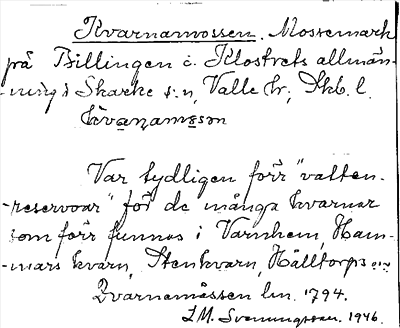 Kvarnamossen. Mossemark
på Billingen i Klostrets allmän-
-ning i Skarke s:n, Valle hr; Skb. l.
kvanamosen
Var tydligen förr "vatten-
-reservoar" för de många kvarnar
som förr funnos i Varnhem, Ham-
-mars kvarn, Stenkvarn, Hälltorps
Qvarnamåssen lm. 1794.
I.M. Svenungsson. 1946.